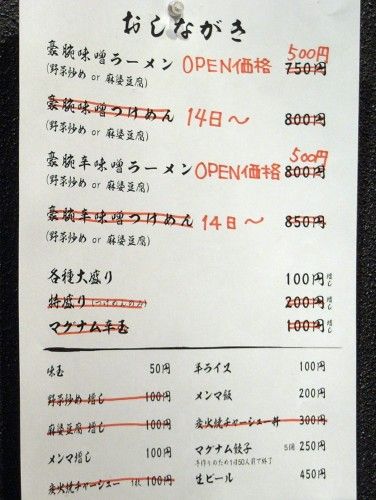 おしながき
豪腕味噌ラーメン OPEN価格 500円 750円
(野菜炒め or 麻婆豆腐)
豪腕味噌つけめん 14日〜 800円
(野菜炒め or 麻婆豆腐)
豪腕辛味噌ラーメン OPEN価格 500円 800円
(野菜炒め or 麻婆豆腐)
豪腕辛味噌つけめん 14日〜 850円
(野菜炒め or 麻婆豆腐)
各種大盛り 100円増し
特盛り(つけめんのみ) 200円増し
マグナム辛玉 100円増し
味玉 50円
野菜炒め増し 100円
麻婆豆腐増し 100円
メンマ増し 100円
炭火焼チャーシュー 1枚 100円
半ライス 100円
メンマ飯 200円
炭火焼チャーシュー丼 300円
マグナム餃子 5個 250円
手作りのため1日50人前で終了
生ビール 450円